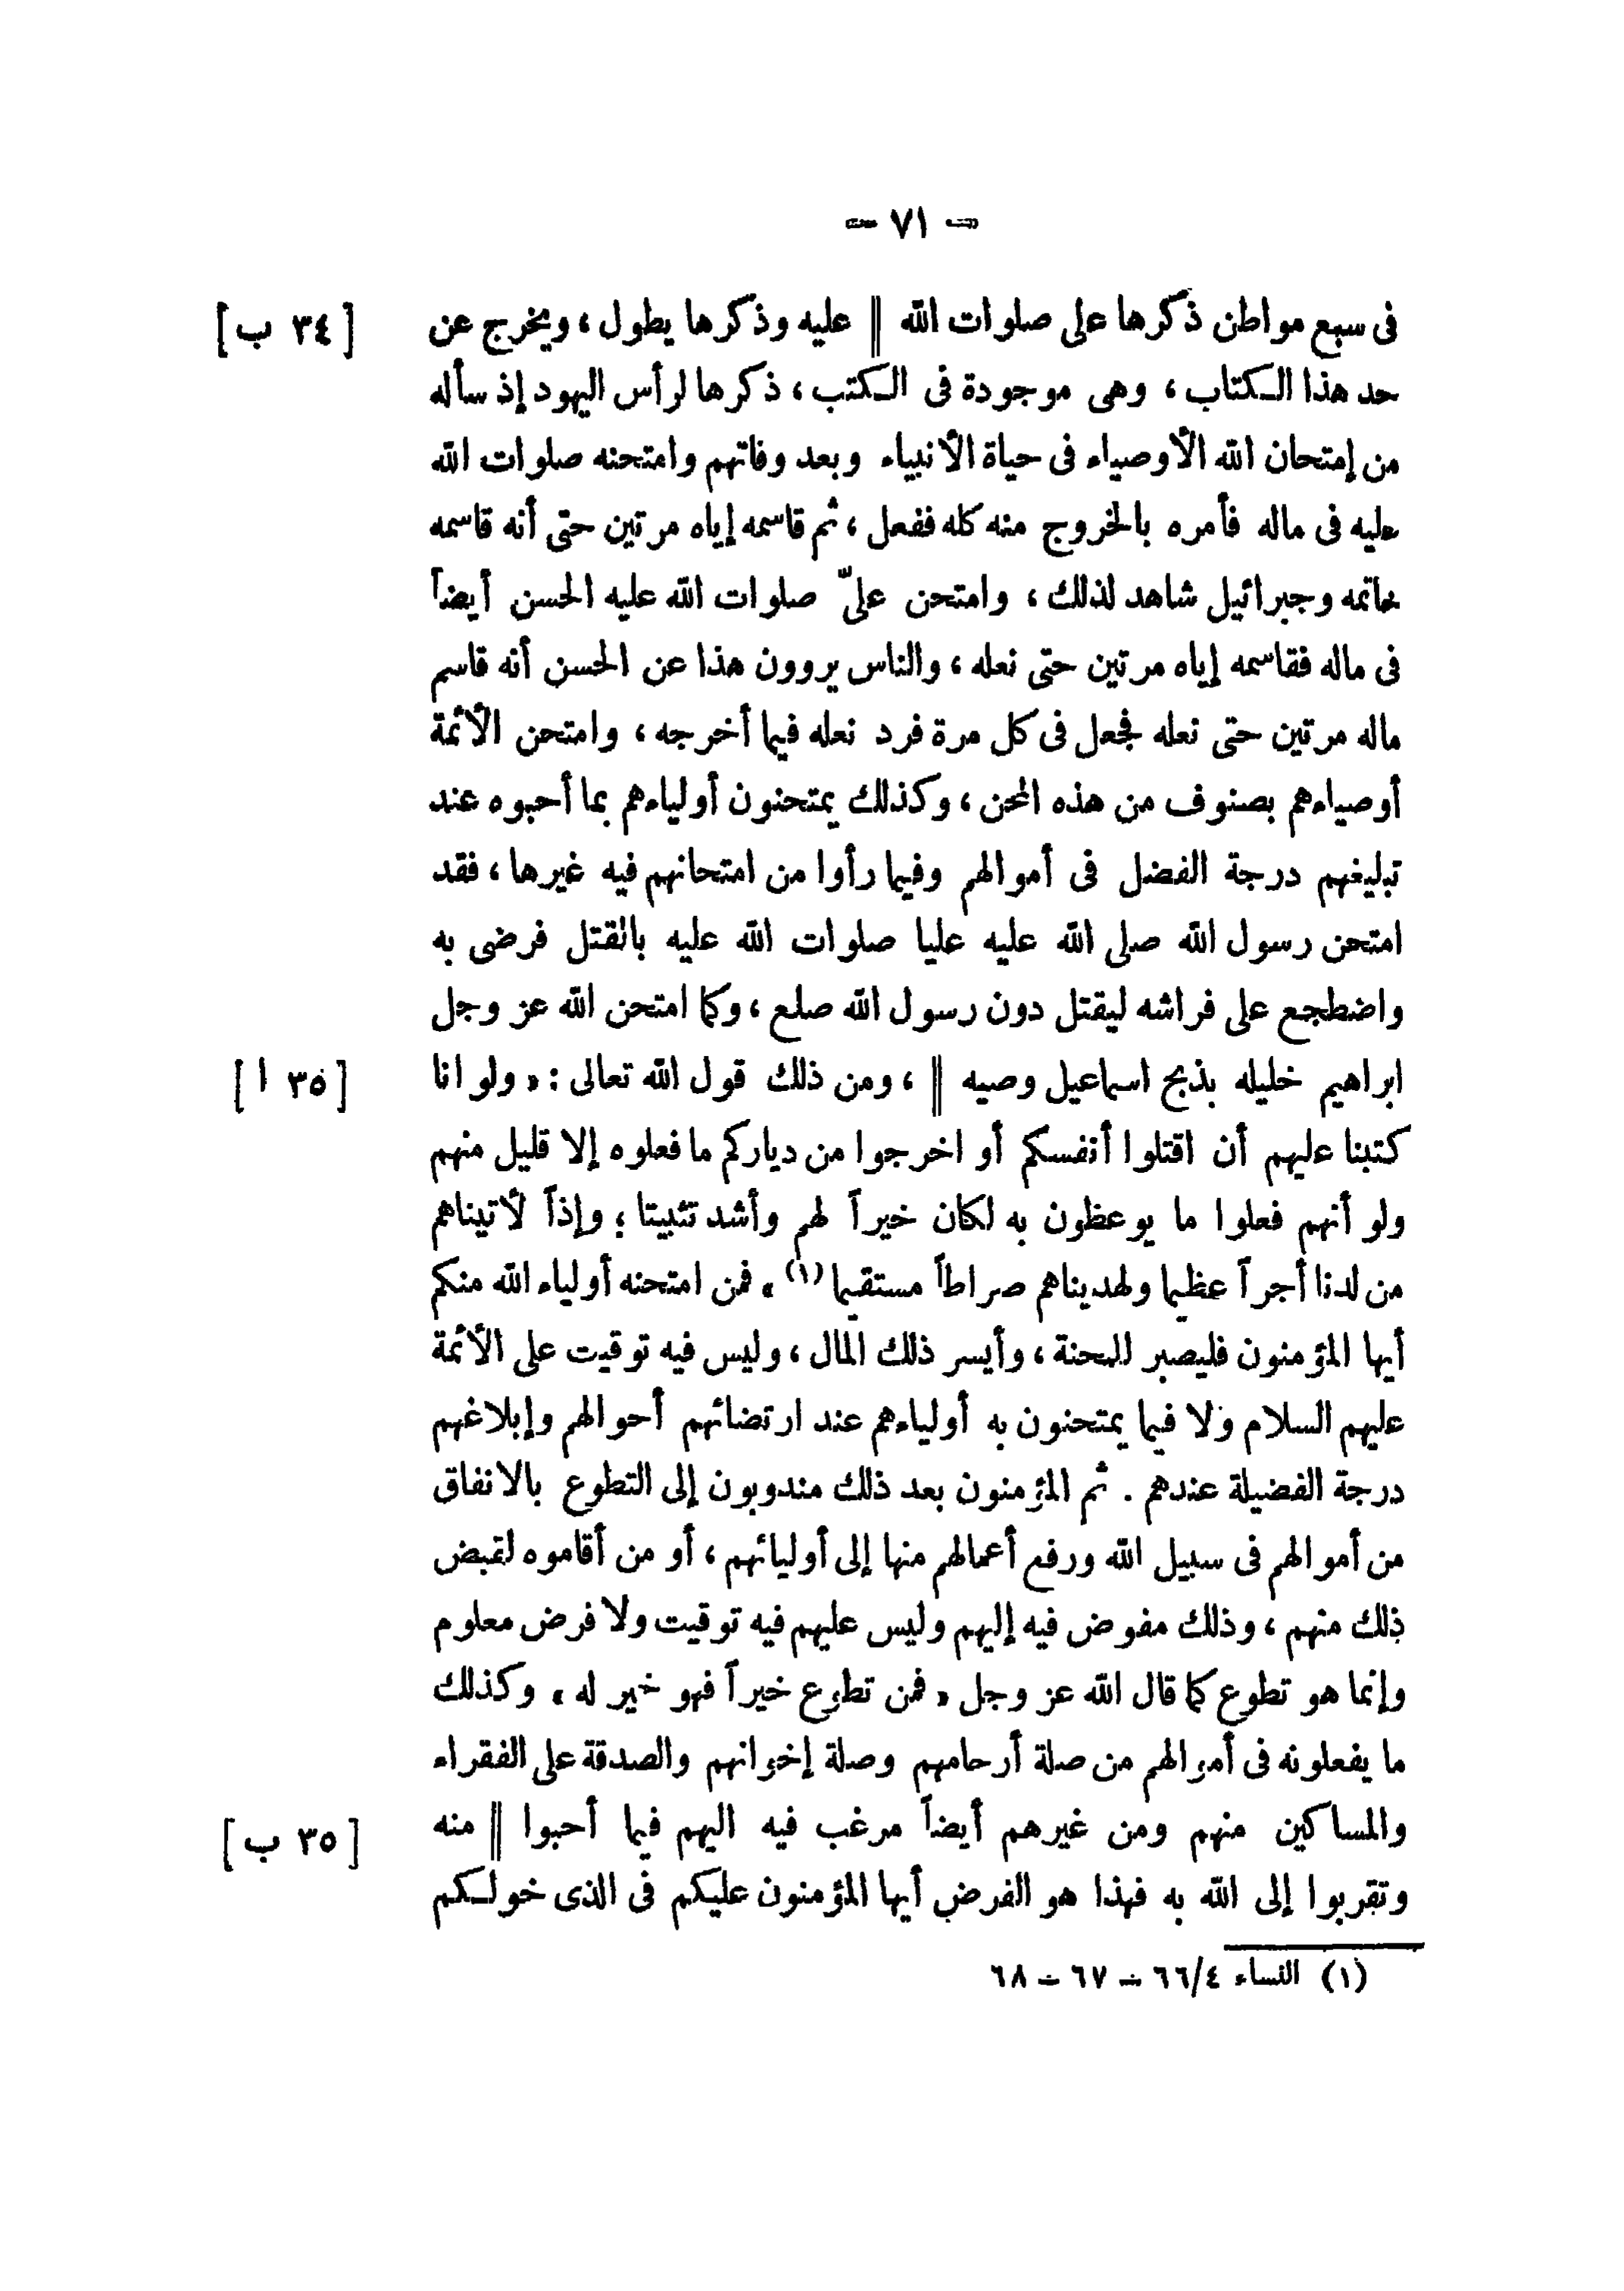 - ٧١ -
فى سبع مواطن ذكرها على صلوات الله || عليه وذكرها يطول ، ويخرج عن [ ٣٤ ب ]
حد هذا الكتاب ، وهى موجودة فى الكتب ، ذكرها لرأس اليهود إذ سأله
من إمتحان الله الأوصياء فى حياة الأنبياء وبعد وفاتهم وامتحنه صلوات الله
عليه فى ماله فأمره بالخروج منه كله ففعل ، ثم قاسمه إياه مرتين حتى أنه قاسمه
خاتمه وجبرائيل شاهد لذلك ، وامتحن علىّ صلوات الله عليه الحسن أيضاً
فى ماله فقاسمه إياه مرتين حتى نعله ، والناس يروون هذا عن الحسن أنه قاسم
ماله مرتين حتى نعله فجعل فى كل مرة فرد نعله فيما أخرجه ، وامتحن الأئمة
أوصياءهم بصنوف من هذه المحن ، وكذلك يمتحنون أولياءهم بما أحبوه عند
تبليغهم درجة الفضل فى أموالهم وفيما رأوا من امتحانهم فيه غيرها ، فقد
امتحن رسول الله صلى الله عليه عليا صلوات الله عليه بالقتل فرضى به
واضطجع على فراشه ليقتل دون رسول الله صلع ، وكما امتحن الله عز وجل
ابراهيم خليله بذبح اسماعيل وصيه || ، ومن ذلك قول الله تعالى : « ولو انا [ ٣٥ ا ]
كتبنا عليهم أن اقتلوا أنفسكم أو اخرجوا من دياركم ما فعلوه إلا قليل منهم
ولو أنهم فعلوا ما يوعظون به لكان خيراً لهم وأشد تثبيتا ؛ وإذاً لأتيناهم
من لدنا أجراً عظيما ولهديناهم صراطاً مستقيما (١) » فمن امتحنه أولياء الله منكم
أيها المؤمنون فليصبر للمحنة ، وأيسر ذلك المال ، وليس فيه توقيت على الأئمة
عليهم السلام ولا فيما يمتحنون به أولياءهم عند ارتضائهم أحوالهم وإبلاغهم
درجة الفضيلة عندهم . ثم المؤمنون بعد ذلك مندوبون إلى التطوع بالانفاق
من أموالهم فى سبيل الله ورفع أعمالهم منها إلى أوليائهم ، أو من أقاموه لقبض
ذلك منهم ، وذلك مفوض فيه إليهم وليس عليهم فيه توقيت ولا فرض معلوم
وإنما هو تطوع كما قال الله عز وجل « فمن تطوع خيراً فهو خير له » وكذلك
ما يفعلونه فى أموالهم من صلة أرحامهم وصلة إخوانهم والصدقة على الفقراء
والمساكين منهم ومن غيرهم أيضاً مرغب فيه اليهم فيما أحبوا || منه [ ٣٥ ب ]
وتقربوا إلى الله به فهذا هو الفرض أيها المؤمنون عليكم فى الذى خولكم
(١) النساء ٦٦/٤ - ٦٧ - ٦٨